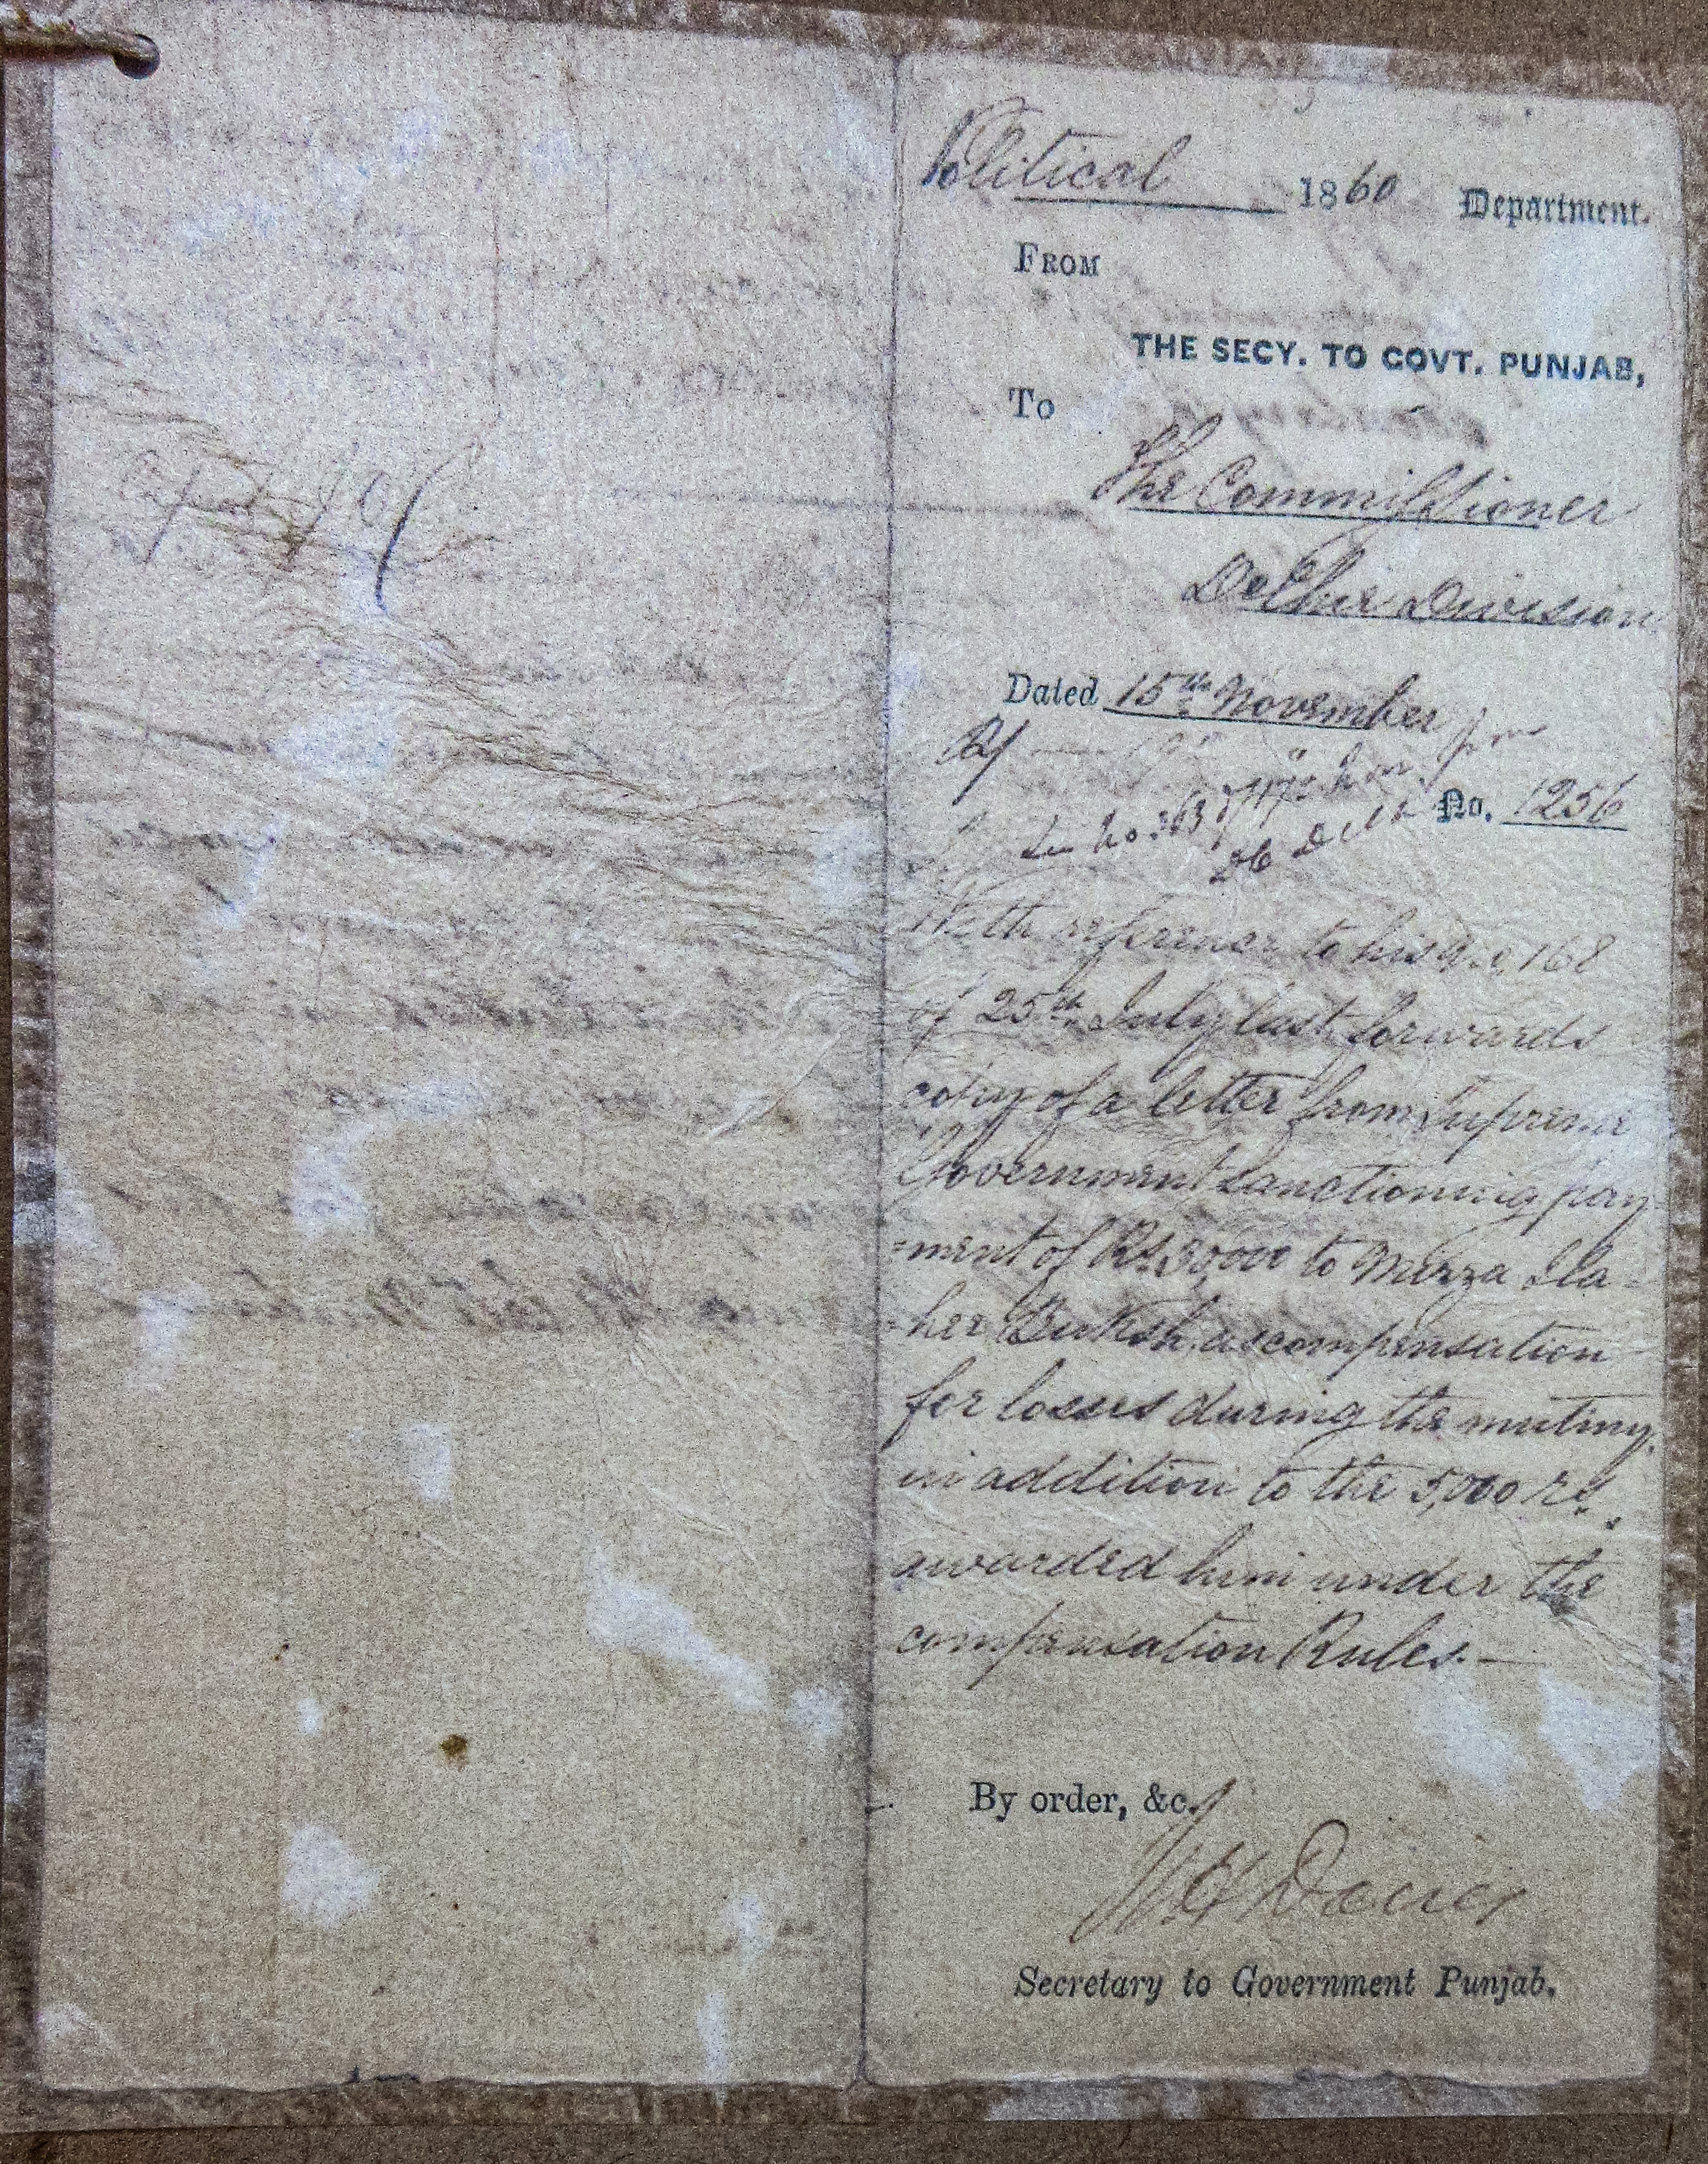 Political 1860 Department.
FROM
THE SECY. TO GOVT. PUNJAB,
To
The Commissioner
Delhie Division
Dated 15th November
No. 1256
With reference to his No. 168
of 25th July last forwards
copy of a letter from Supreme
Government sanctioning pay-
=ment of Rs. 30,000 to Mirza Ila-
=her Buksh as compensation
for losses during the mutiny,
in addition to the 5,000 rs.
awarded him under the
compensation Rules.—
By order, &c.
Secretary to Government Punjab.